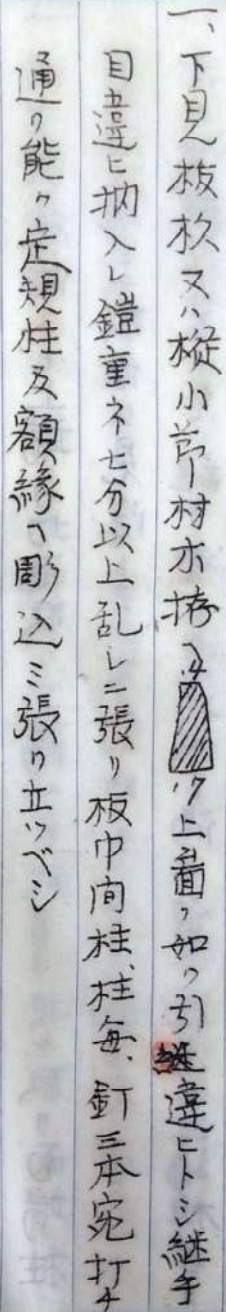 一、下見板杦又ハ樅小節材木拵ヘ.4 .17上面ノ如ク引違ヒトシ継手
目違ヒ抦入レ鎧重ネ七分以上乱レニ張リ板巾间柱、柱毎、釘三本宛打チ
通リ能ク定規柱及額縁ヘ彫込ミ張リ立ツベシ